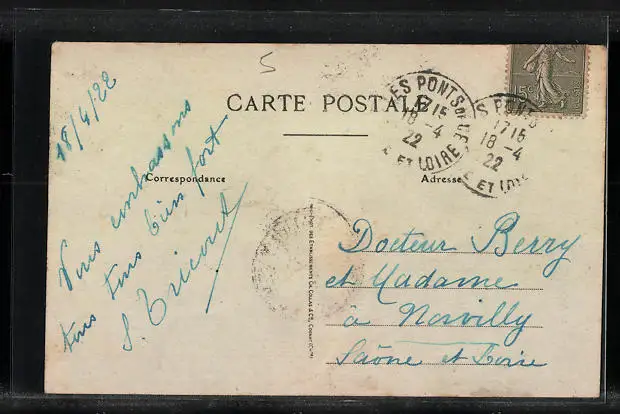 5
CARTE POSTALE
Correspondance
Adresse
18/4/22
Vous embrassons
tous bien fort
LES PONTS DE CE
17 15
18 -4
22
E ET LOIRE
S PONTS
17 15
18 -4
22
E ET LOIRE
15c
Docteur Berry
et Madame
à Norvilly
Saône et Loire